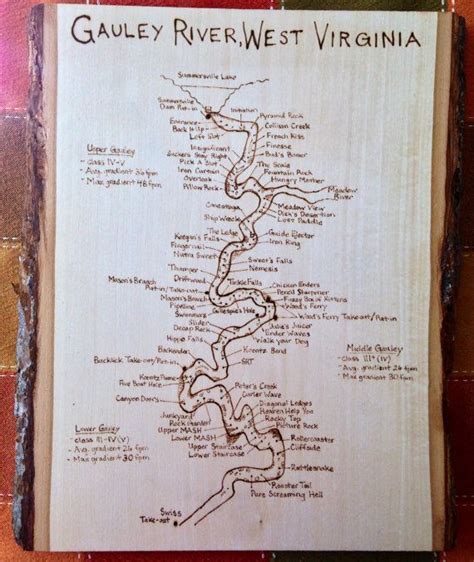 GAULEY RIVER, WEST VIRGINIA
Summersville Lake
Summersville
Dam Put-in
Initiation
Entrance
Back It Up
Left Slot
Pyramid Rock
Collison Creek
French Kiss
Finesse
Bud's Boner
Insignificant
Suckers Stay Right
Pick A Slot
Iron Curtain
Overlook
Pillow Rock
The Scale
Fountain Rock
Hungry Mother
Meadow
River
Upper Gauley
- class IV-V
- Avg. gradient 36 fpm
- Max gradient 48 fpm
Conestoga
Shipwreck
Meadow View
Dick's Desertion
Lost Paddle
The Ledge
Keegin's Falls
Fingernail
Nutra Sweet
Guide Ejector
Iron King
Sweet's Falls
Nemesis
Thumper
Driftwood
Mason's Branch
Put-in/Take-out
Mason's Branch
Pipeline
Tickle Falls
Chicken Enders
Pencil Sharpener
Fuzzy Box of Kittens
Wood's Ferry
Wood's Ferry Take-out/Put-in
Gillespie's Hole
Swimmers
Slider
Hippo Falls
Julie's Juicer
Ender Waves
Walk your Dog
Koontz Bend
Backender
Backlick Take-out/Put-in
Koontz Flume
Five Boat Hole
Canyon Doors
Middle Gauley
- class III+ (IV)
- Avg. gradient 26 fpm
- Max gradient 30 fpm
Peter's Creek
Carter Wave
Diagonal Ledges
Heaven Help You
Rocky Top
Picture Rock
Junkyard
Rock Garden
Upper MASH
Lower MASH
Upper Staircase
Lower Staircase
Rollercoaster
Cliffside
Rattlesnake
Rooster Tail
Pure Screaming Hell
Lower Gauley
- class III-IV (V)
- Avg. gradient 26 fpm
- Max gradient 30 fpm
Swiss
Take-out